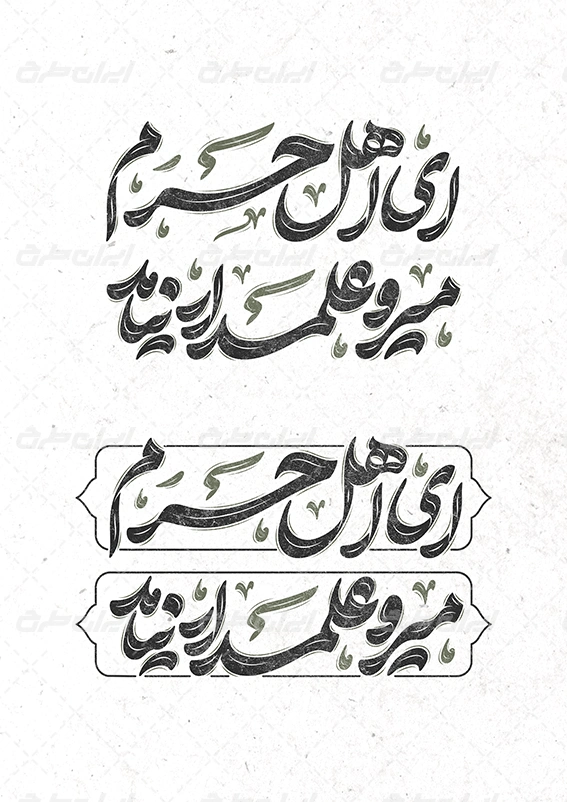 ای اهل حرم
میر و علمدار نیامد
ای اهل حرم
میر و علمدار نیامد